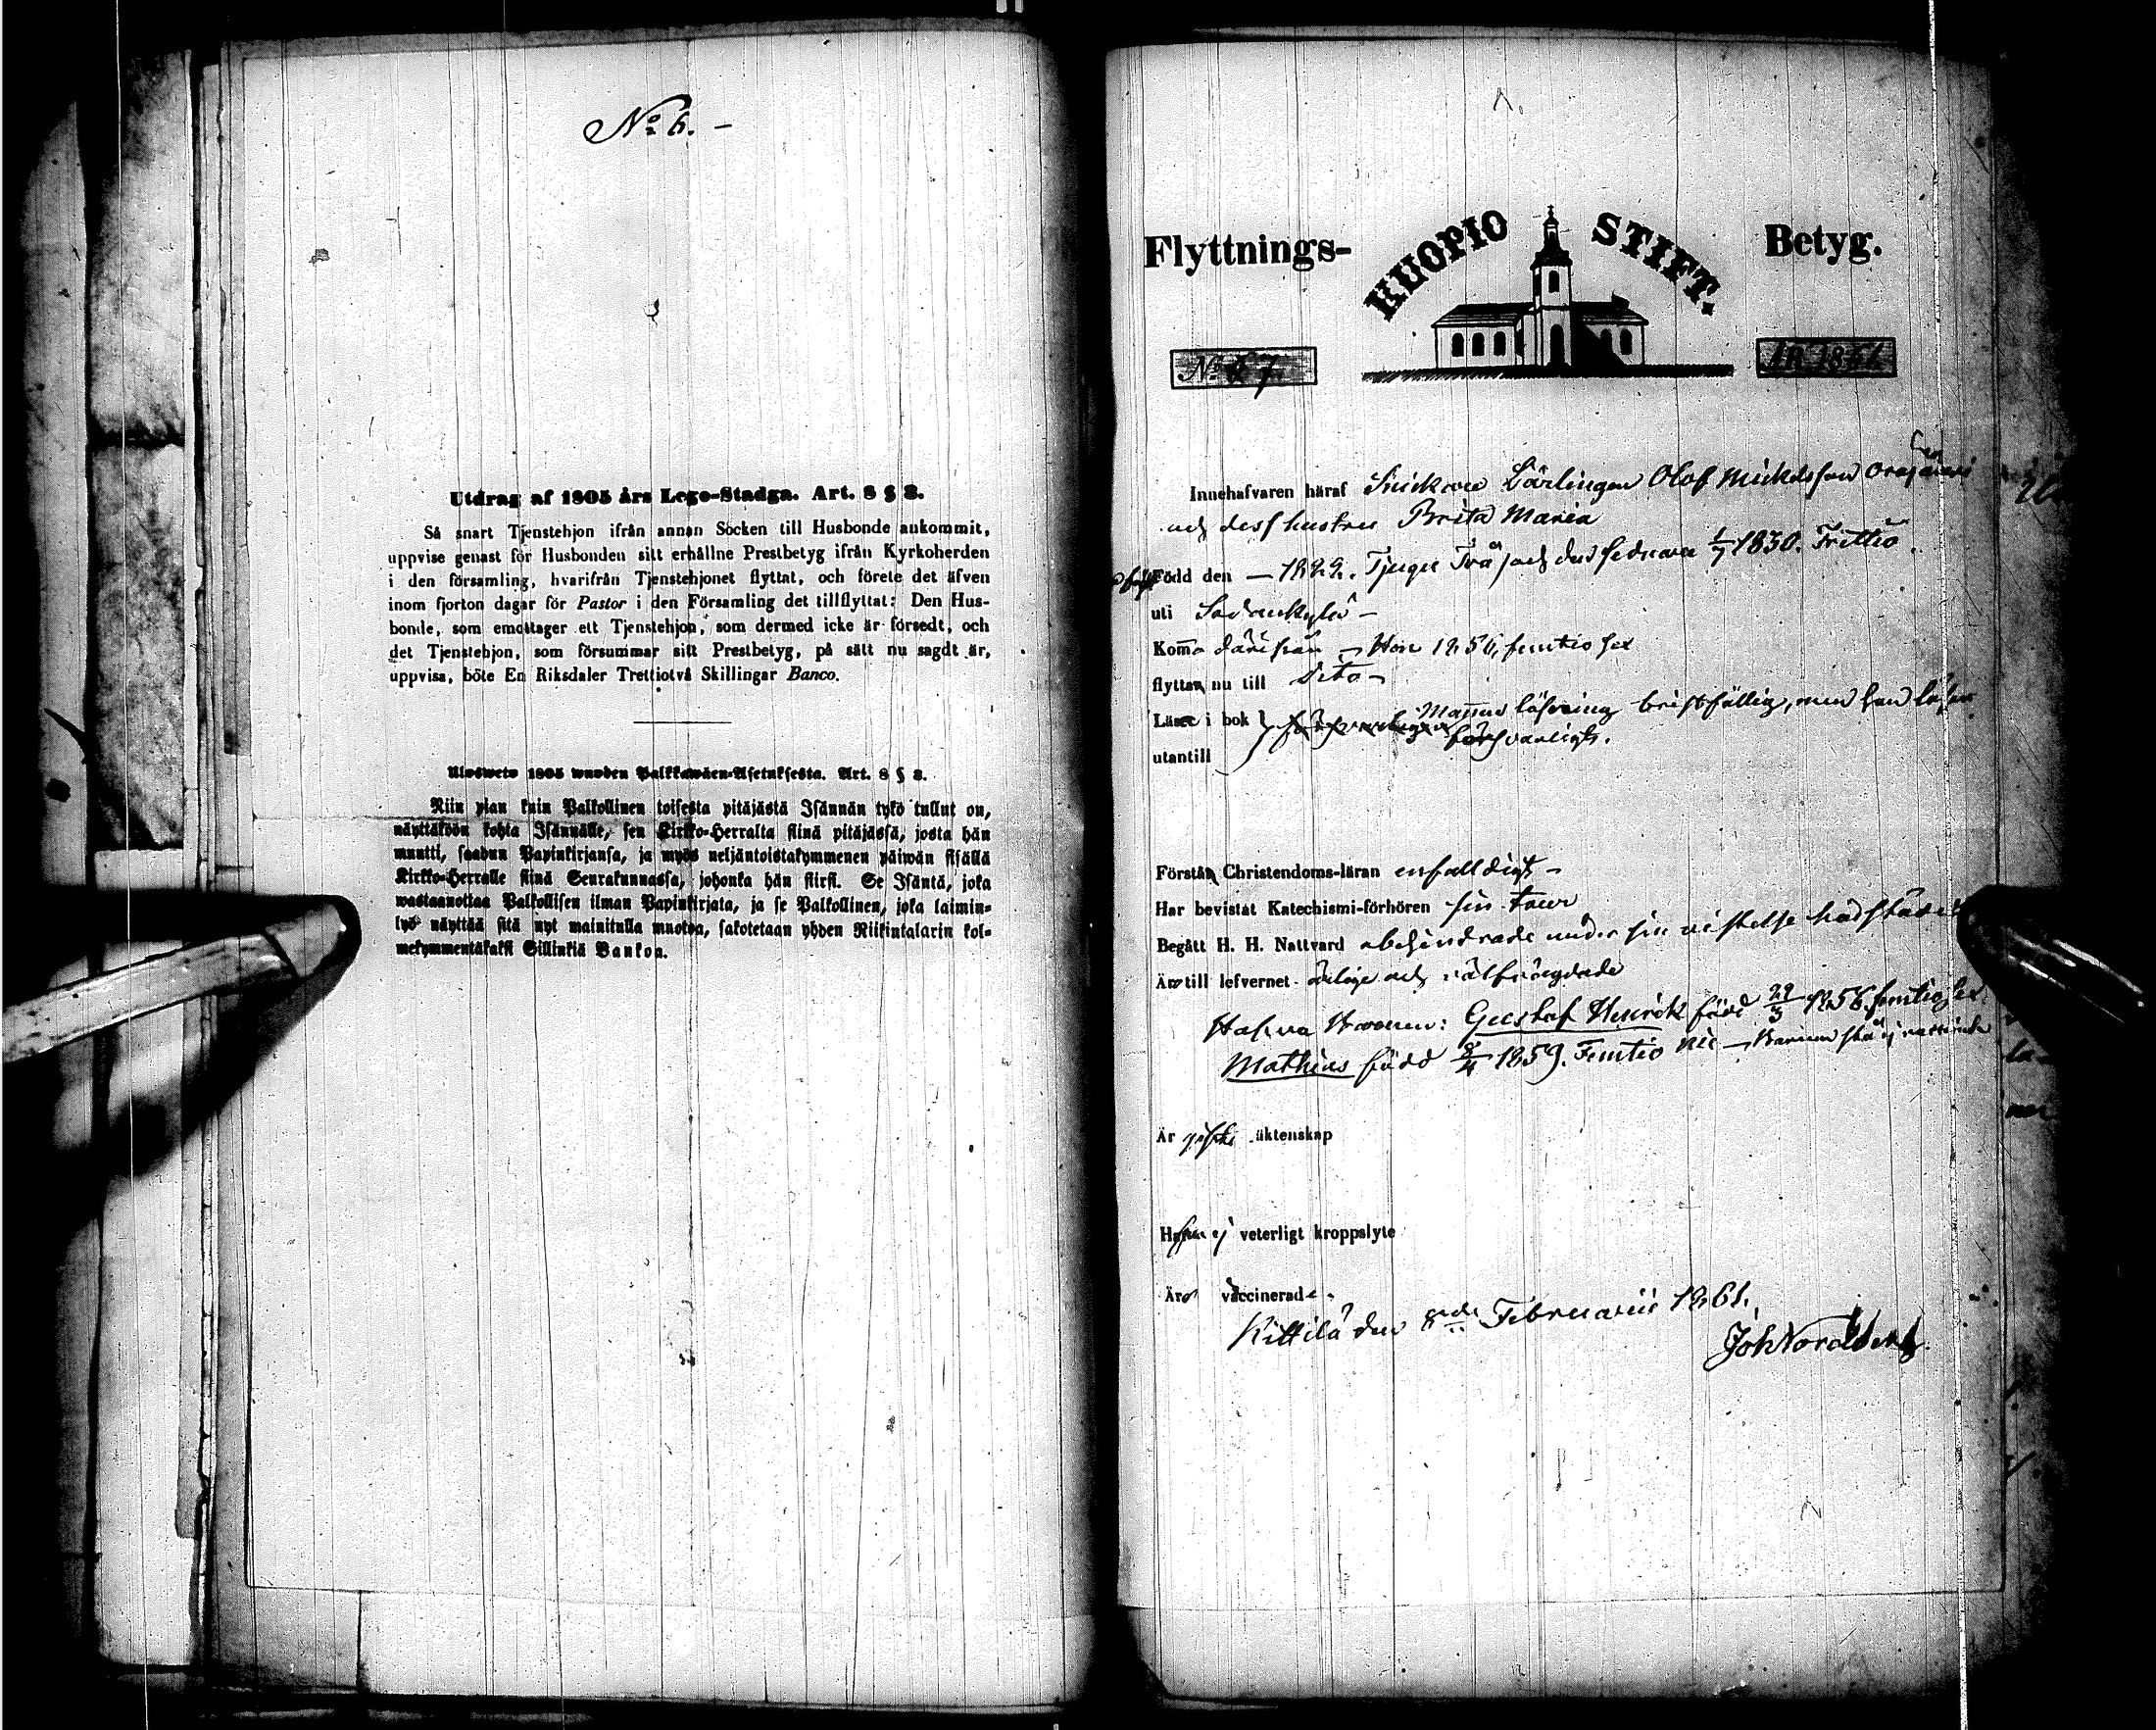 № 6. –
Utdrag af 1805 års Lego-Stadga. Art. 8 § 2.
Så snart Tjenstehjon ifrån annan Socken till Husbonde ankommit,
uppvise genast för Husbonden sitt erhållne Prestbetyg ifrån Kyrkoherden
i den församling, hvarifrån Tjenstehjonet flyttat, och förete det äfven
inom fjorton dagar för Pastor i den Församling det tillflyttat: Den Hus-
bonde, som emottager ett Tjenstehjon, som dermed icke är försedt, och
det Tjenstehjon, som försummar sitt Prestbetyg, på sätt nu sagdt är,
uppvisa, böte En Riksdaler Trettiotvå Skillingar Banco.
Ulosweto 1805 wuoden Palkkawäen-Asetuksesta. Art. 8 § 2.
Niin pian kuin Palkollinen toisesta pitäjästä Isännän tykö tullut on,
näyttäköön kohta Isännälle, sen Kirkko-Herralta siinä pitäjässä, josta hän
muutti, saadun Papinkirjansa, ja myös neljäntoistakymmenen päiwän sisällä
Kirkko-Herralle siinä Seurakunnassa, johonka hän siirsi. Se Isäntä, joka
wastaanottaa Palkollisen ilman Papinkirjata, ja se Palkollinen, joka laimin-
lyö näyttää sitä nyt mainitulla muotoa, sakotetaan yhden Riikintalarin kol-
mekymmentäkaksi Sillinkiä Bankoa.
Flyttnings- KUOPIO STIFT. Betyg.
№ 27 ÅR 1861
Innehafvaren häraf Snickare Lärlingen Olof Mickelsson
och dess hustru Brita Maria
Född den – 1822. Tjugu Två och des sednare 1/7 1830. Trettio
uti Sodankylä –
Kom därifrån – Hon 1856, femtio sex
flyttar nu till dito –
Läser i bok Mannens läsning bristfällig, men hon läser
utantill försvarligt.
Förstår Christendoms-läran enfalldigt –
Har bevistat Katechismi-förhören sin tour
Begått H. H. Nattvard obehindrade under sin vistelse härstädes
Äro till lefvernet ärlige och välfrägdade
Hafva Barnen: Gustaf Henrik född 29/3 1856 femtio sex
Mathias född 8/4 1859. Femtio nie –
Är gifte äktenskap
Hafva ej veterligt kroppslyte
Äro vaccinerade.
Kittilä den 8de Februarii 1861.
Joh Nordberg.